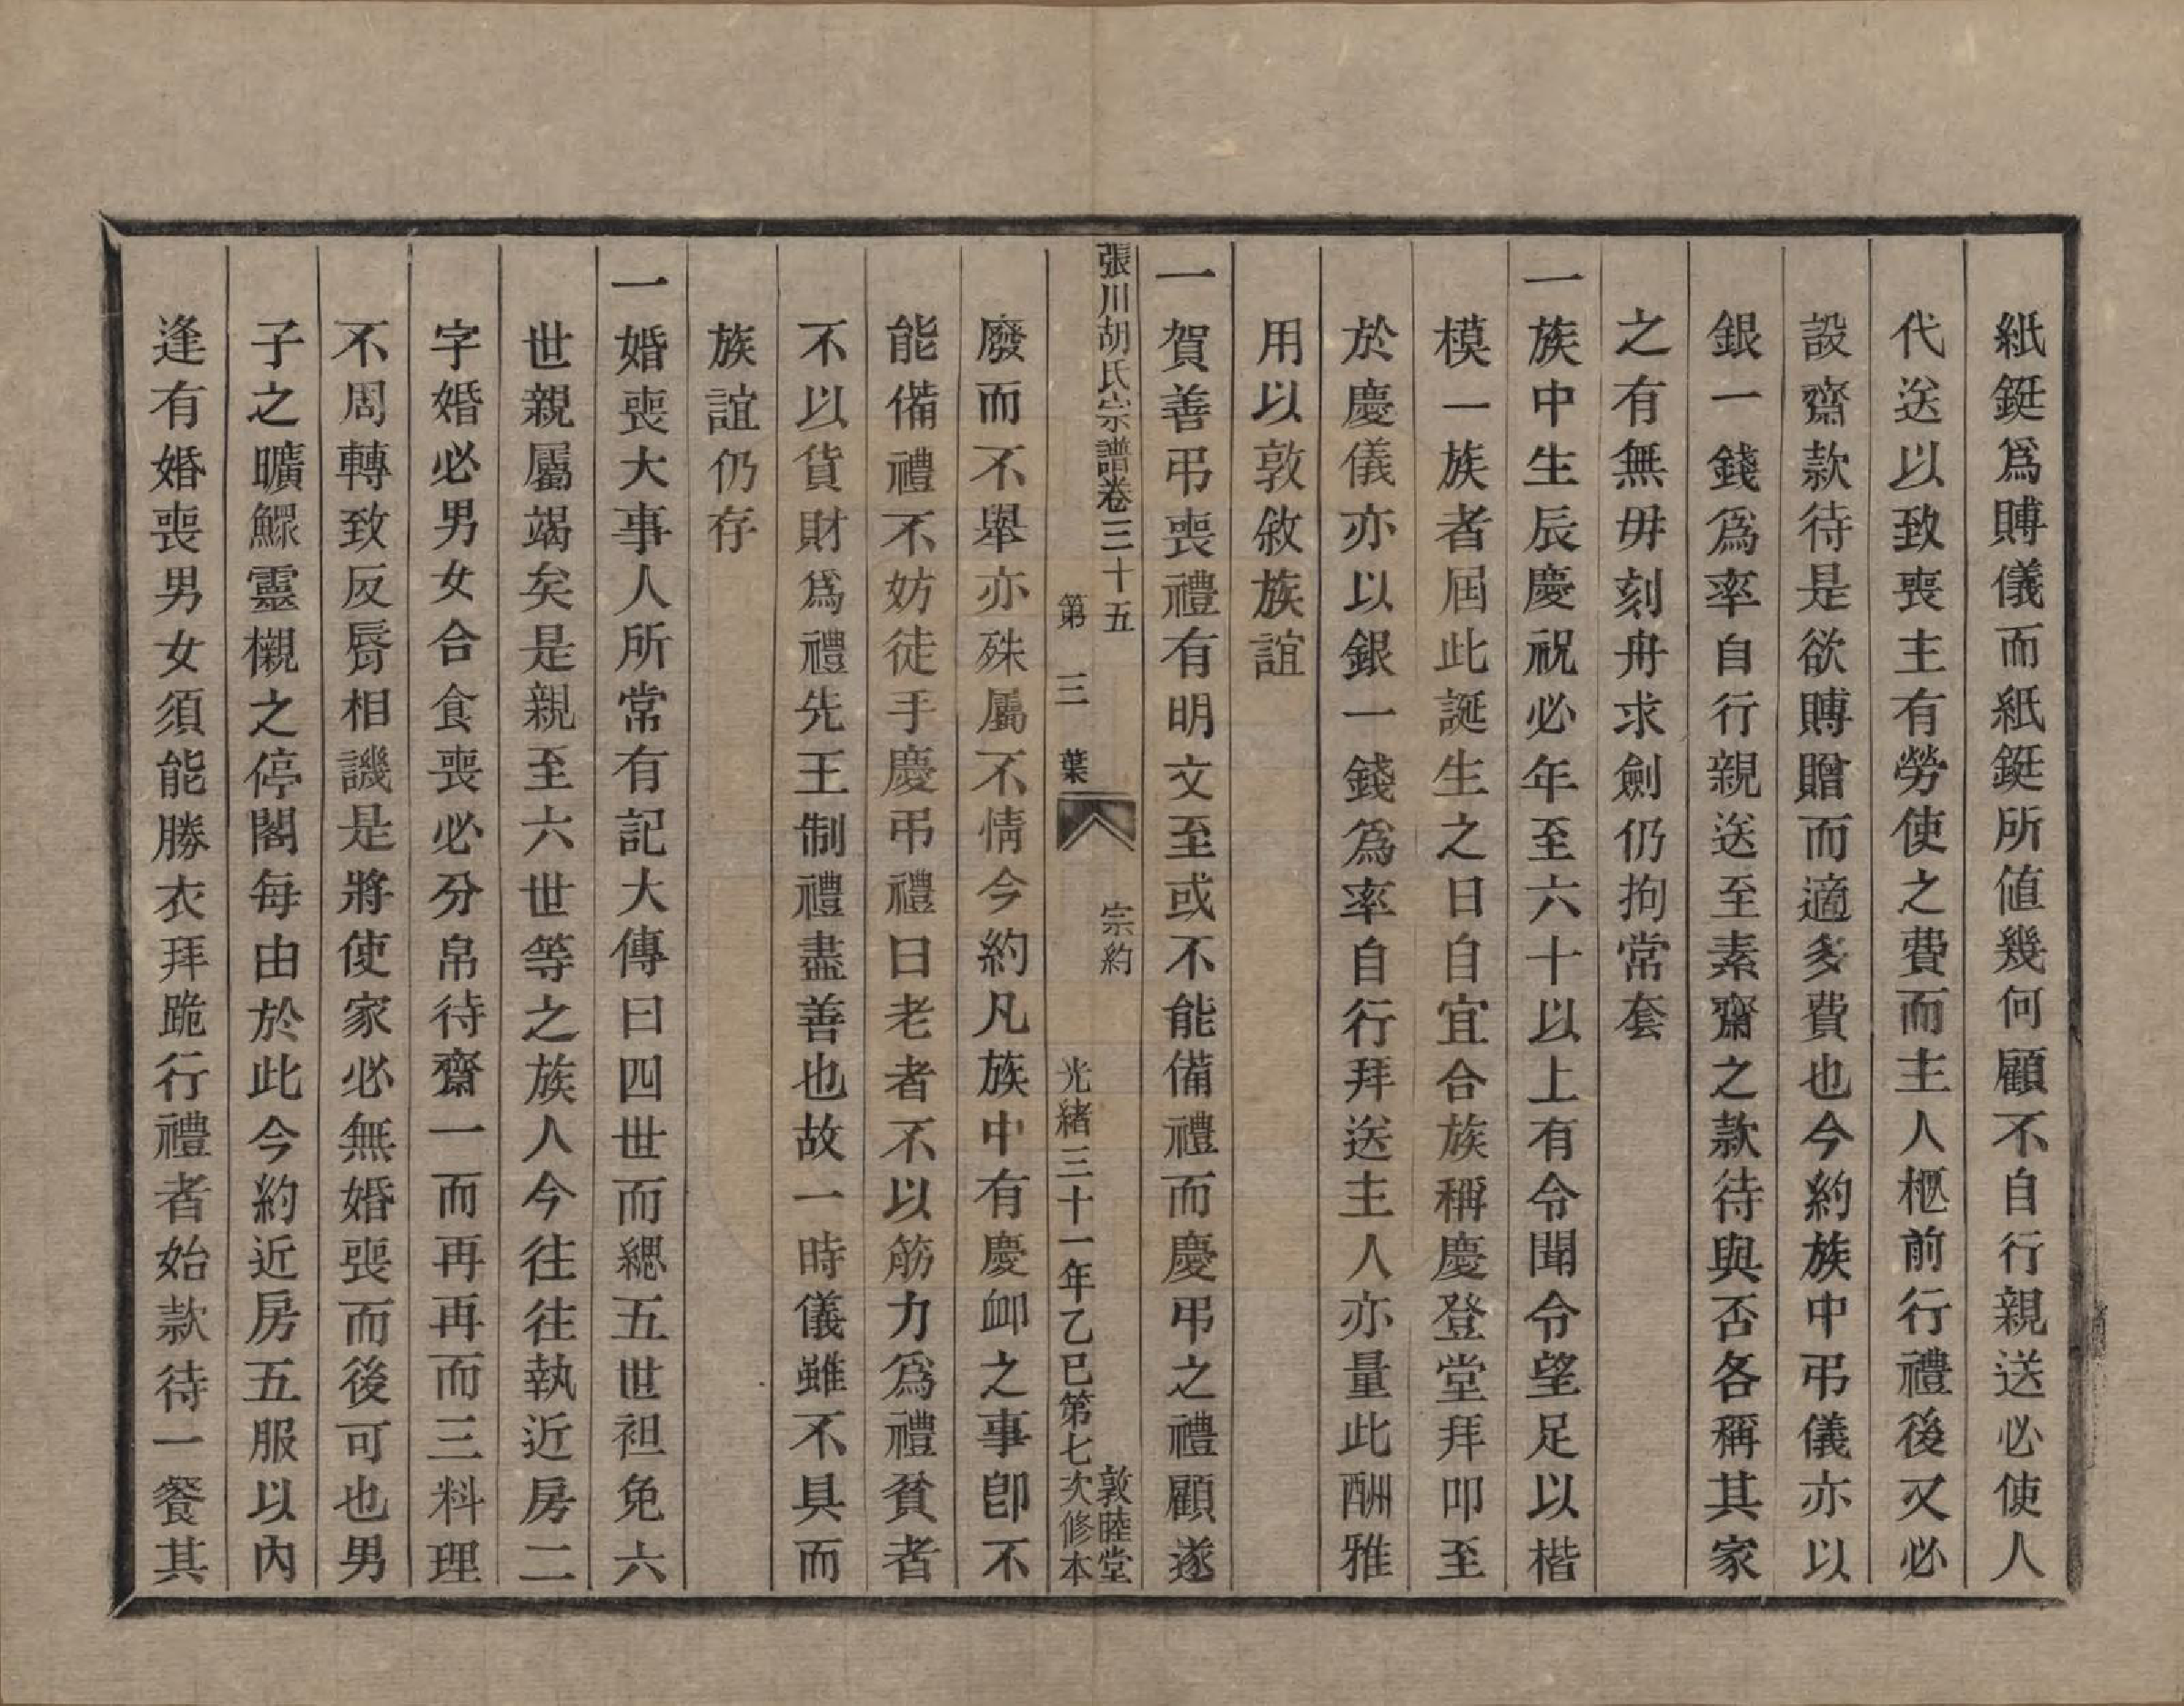 紙鋌爲賻儀而紙鋌所值幾何顧不自行親送必使人
代送以致喪主有勞使之費而主人柩前行禮後又必
設齋款待是欲賻贈而適多費也今約族中弔儀亦以
銀一錢爲率自行親送至素齋之款待與否各稱其家
之有無毋刻舟求劍仍拘常套
一族中生辰慶祝必年至六十以上有令聞令望足以楷
模一族者屆此誕生之日自宜合族稱慶登堂拜叩至
於慶儀亦以銀一錢爲率自行拜送主人亦量此酬雅
用以敦敘族誼
一賀善弔喪禮有明文至或不能備禮而慶弔之禮顧遂
張川胡氏宗譜卷三十五 宗約 敦睦堂
第三葉 光緒三十一年乙巳第七次修本
廢而不舉亦殊屬不情今約凡族中有慶卹之事卽不
能備禮不妨徒手慶弔禮曰老者不以筋力爲禮貧者
不以貨財爲禮先王制禮盡善也故一時儀雖不具而
族誼仍存
一婚喪大事人所常有記大傳曰四世而緦五世袒免六
世親屬竭矣是親至六世等之族人今往往執近房二
字婚必男女合食喪必分帛待齋一而再再而三料理
不周轉致反脣相譏是將使家必無婚喪而後可也男
子之曠鰥靈櫬之停閣每由於此今約近房五服以內
逢有婚喪男女須能勝衣拜跪行禮者始款待一餐其